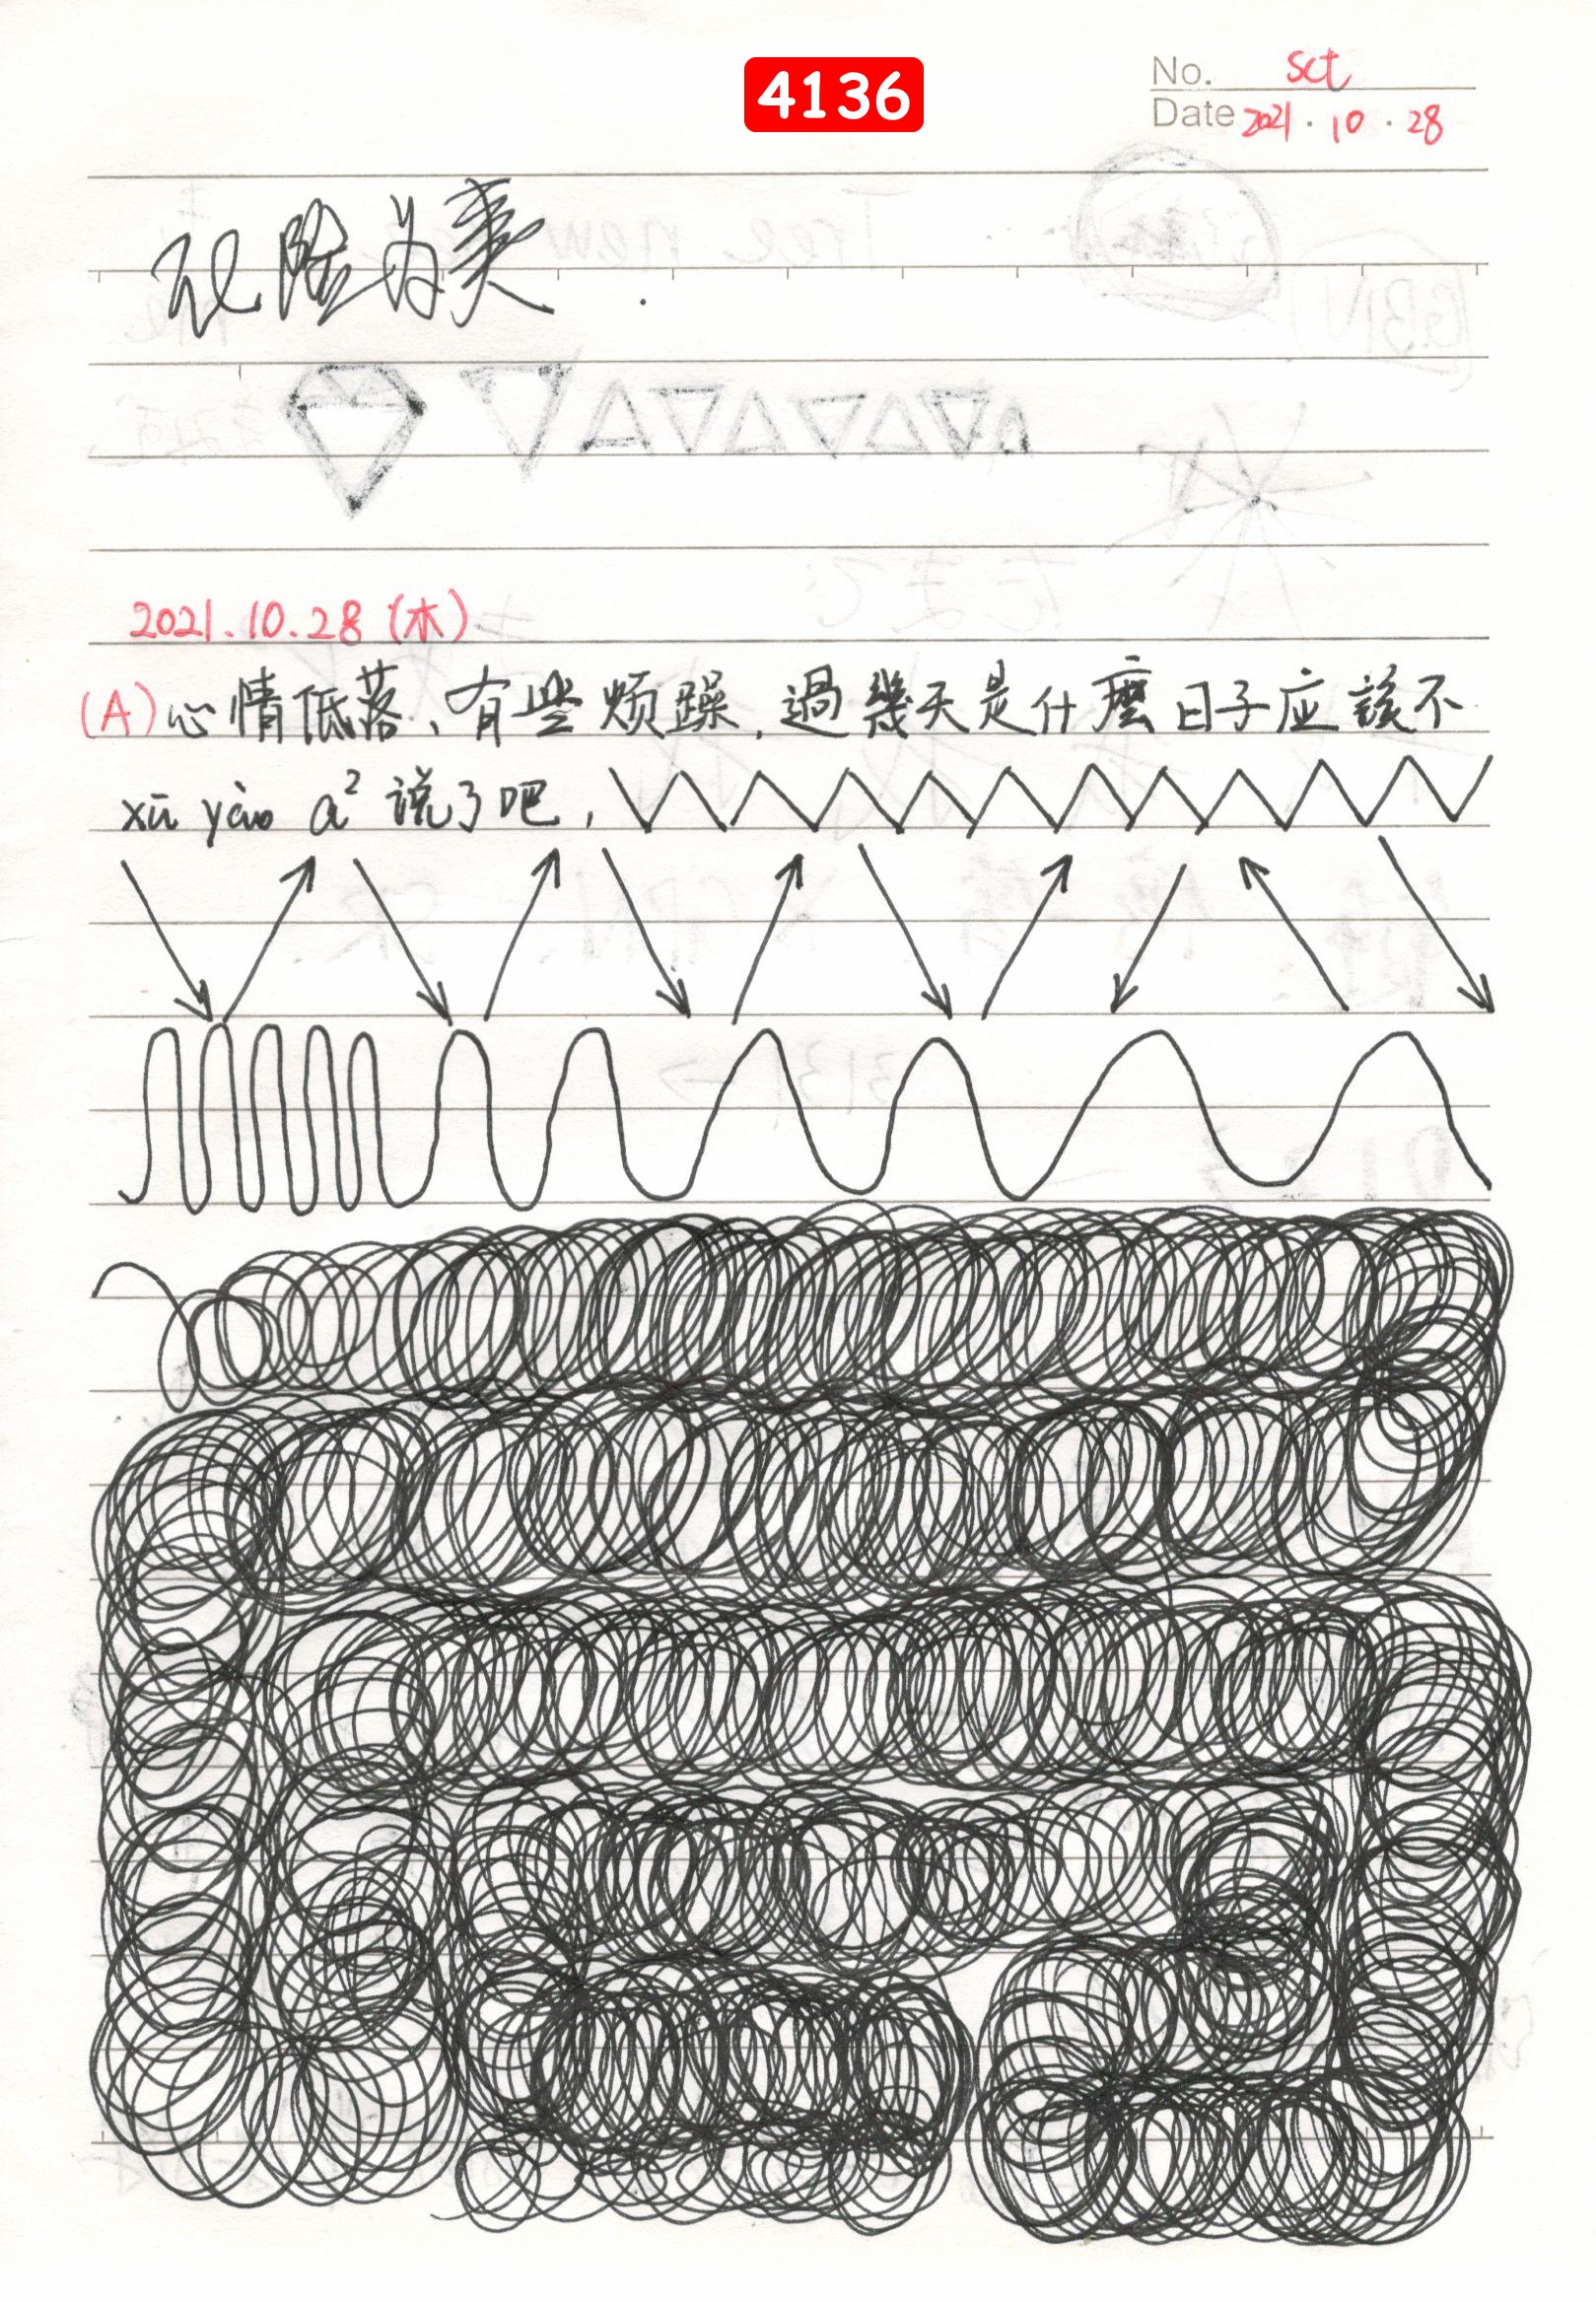 4136
No. sct
Date 2021.10.28
化险为
2021.10.28 (木)
(A)心情低落、有些烦躁,過幾天是什麼日子应該不
xū yào a² 说了吧,